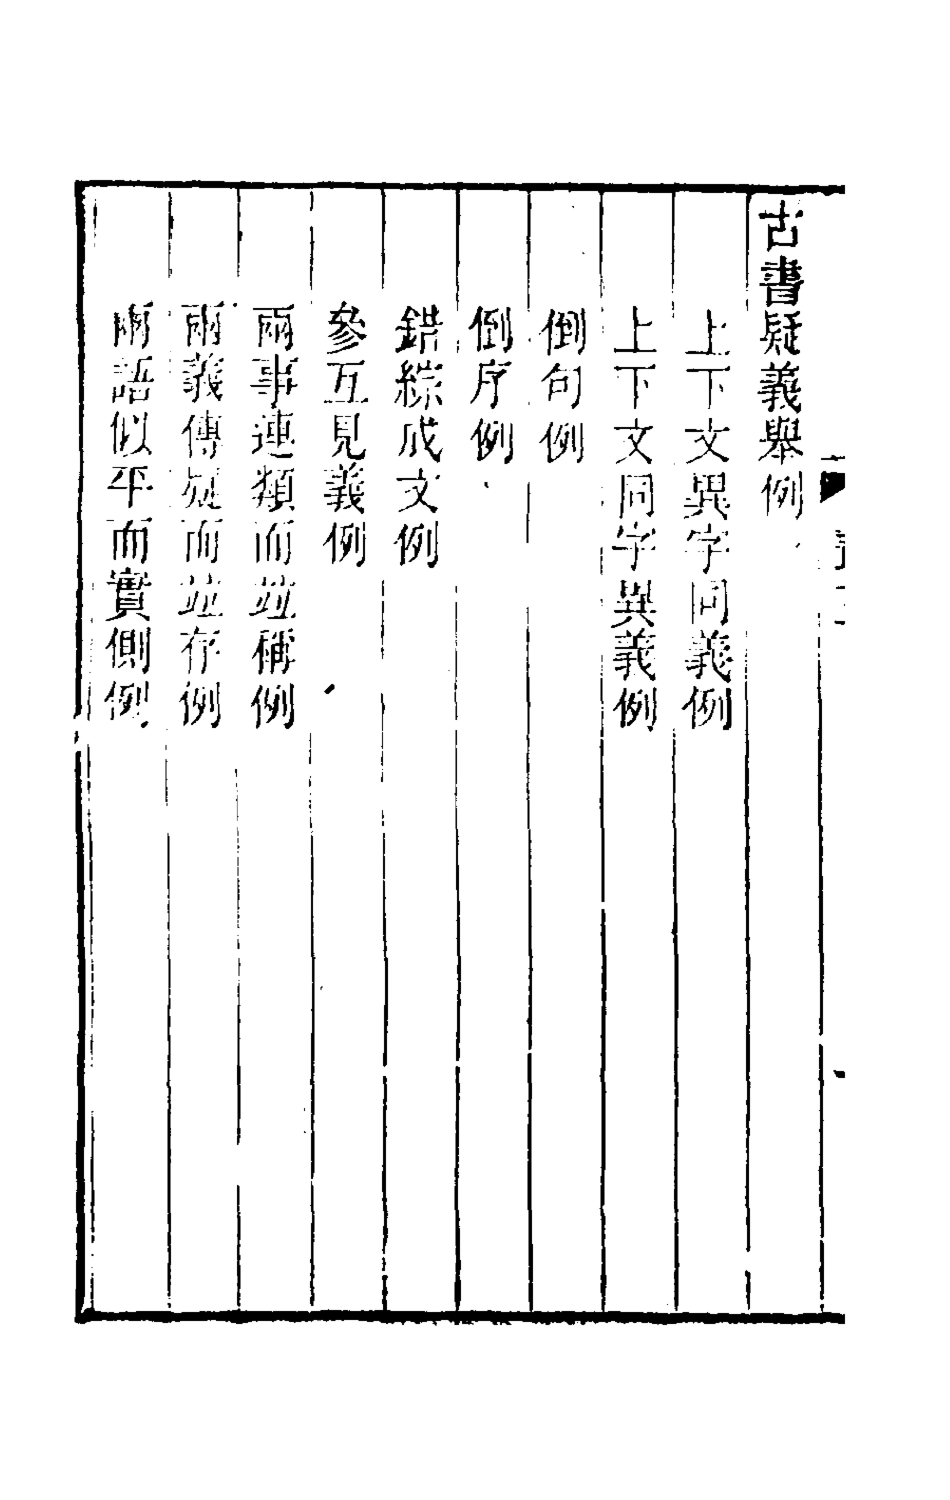 古書疑義舉例
上下文異字同義例
上下文同字異義例
倒句例
倒序例
錯綜成文例
參互見義例
兩事連類而竝稱例
兩義傳疑而竝存例
兩語似平而實側例